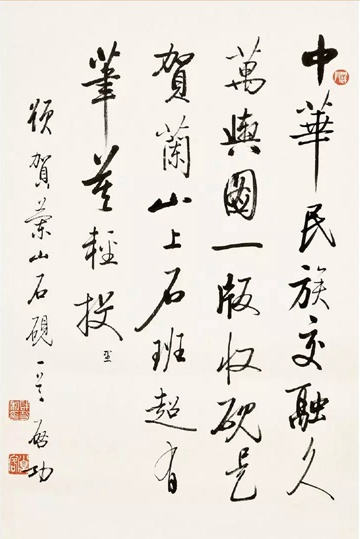 中華民族交融久
萬輿圖一版收硯是
賀蘭山上石班超有
筆莫輕投 里
頌賀蘭山石硯一首 啓功